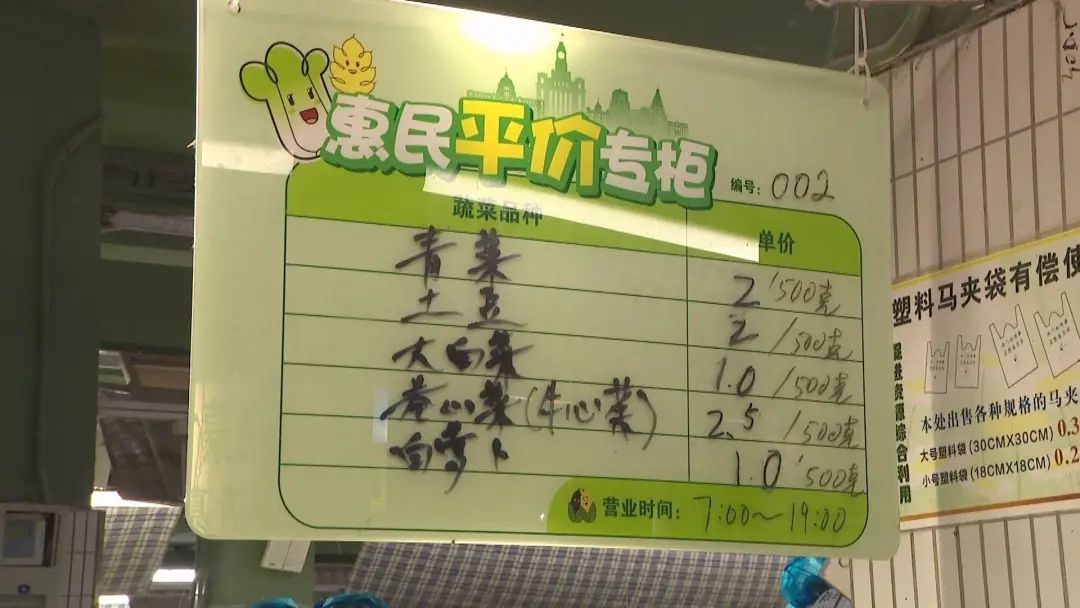 惠民平价专柜
编号：002
蔬菜品种 单价
青菜 2/500克
土豆 2/500克
大白菜 1.0/500克
卷心菜(牛心菜) 2.5/500克
白萝卜 1.0/500克
营业时间：7:00～19:00
塑料马夹袋有偿使
促进资源综合利用
本处出售各种规格的马夹
大号塑料袋(30CMX30CM) 0.3
小号塑料袋(18CMX18CM) 0.2